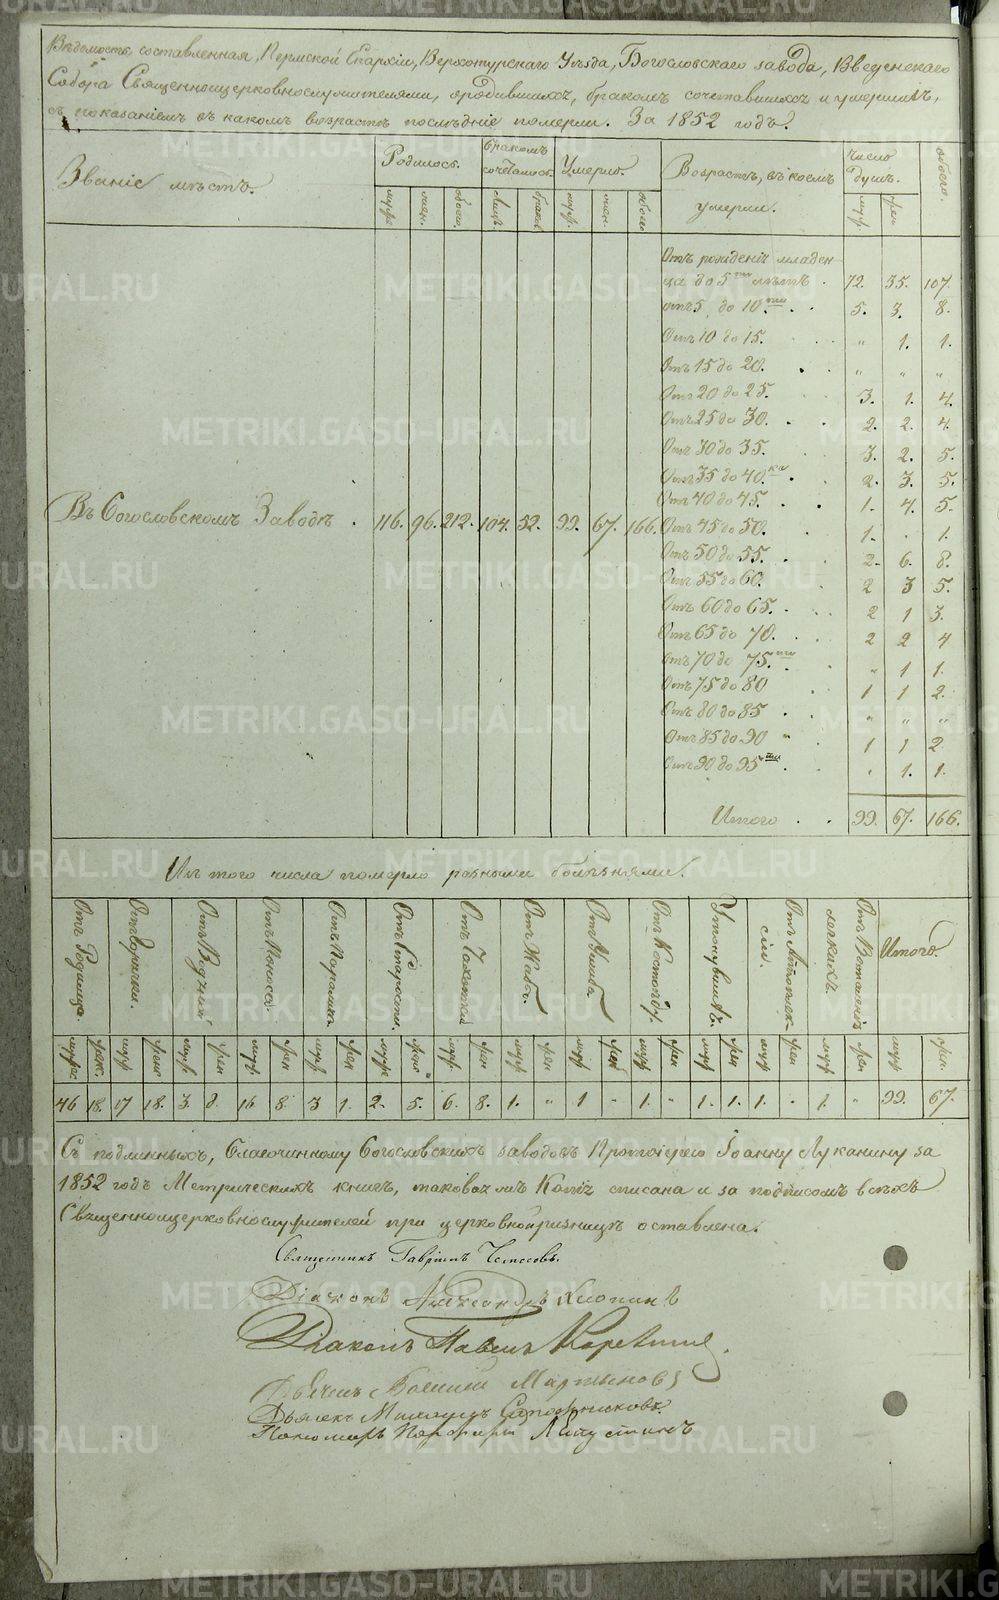 Вѣдомость составленная, Пермской Епархіи, Верхотурскаго Уѣзда, Богословскаго завода, Введенскаго
Собора Священноцерковнослужителями, о родившихся, бракомъ сочетавшихся и умершихъ,
съ показаніемъ въ какомъ возрастѣ послѣдніе померли. За 1852 годъ.
Званіе мѣстъ. Родилось. Бракомъ сочеталось. Умерло. Возрастъ, въ коемъ умерли. Число душъ. Обоего.
муж. жен. обоего. Лицъ. браковъ муж. жен. обоего. муж. жен.
Отъ рожденія младен-
ца до 5ти лѣтъ . 72. 35. 107.
отъ 5 до 10ти . . 5. 3. 8.
Отъ 10 до 15. . . . „ 1. 1.
Отъ 15 до 20. . . „ „ „
Отъ 20 до 25. . . 3. 1. 4.
Отъ 25 до 30. . . 2. 2. 4.
Отъ 30 до 35. 3. 2. 5.
Отъ 35 до 40.ка . 2. 3. 5.
Отъ 40 до 45. . . 1. 4. 5.
Въ Богословскомъ Заводѣ . 116. 96. 212. 104. 52. 99. 67. 166. Отъ 45 до 50. . 1. . 1.
Отъ 50 до 55. . . 2. 6. 8.
Отъ 55 до 60. . . 2 3 5.
Отъ 60 до 65. . . 2 1 3.
Отъ 65 до 70. . . 2 2 4
Отъ 70 до 75.ти . „ 1 1.
Отъ 75 до 80 . 1 1 2.
Отъ 80 до 85 . . „ „ „
Отъ 85 до 90 „ . 1 1 2
Отъ 90 до 95ти . . 1. 1.
Итого . . 99. 67. 166.
Изъ того числа померло разными болѣзнями.
Отъ Родимца. Отъ Горячки. Отъ Водяной Отъ Поноса. Отъ Паралич. Отъ Старости. Отъ Чахотки Отъ Жабы. Отъ Ушиба Отъ Костоѣду. Утонувшихъ. Отъ Апоплек-сіи. Отъ Воспаленія легкихъ. Итого.
муж. жен. муж. жен. муж. жен муж. жен муж. жен муж. жен муж. жен муж. жен муж. жен муж. жен муж. жен муж. жен муж. жен муж. жен.
46 18. 17 18. 3. 8. 16 8. 3 1. 2. 5. 6. 8. 1. „ 1 „ 1. „ 1. 1. 1. . 1. „ 99. 67.
Съ подлинныхъ, Благочинному Богословскихъ заводовъ Протоіерею Іоанну Луканину за
1852 годъ Метрическихъ книгъ, таковая же Копія списана и за подписомъ всѣхъ
Священноцерковнослужителей при церковной ризницѣ оставлена.
Священникъ Гавріилъ
Діаконъ Александръ Хлопинъ
Діаконъ Павелъ
Дьячекъ Василій Мартыновъ
Дьячекъ Сапожниковъ
Пономарь Порфирій
METRIKI.GASO-URAL.RU